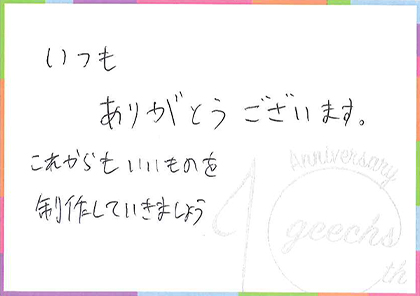 いつも
ありがとうございます。
これからもいいものを
制作していきましょう
Anniversary
10
gcechs
th